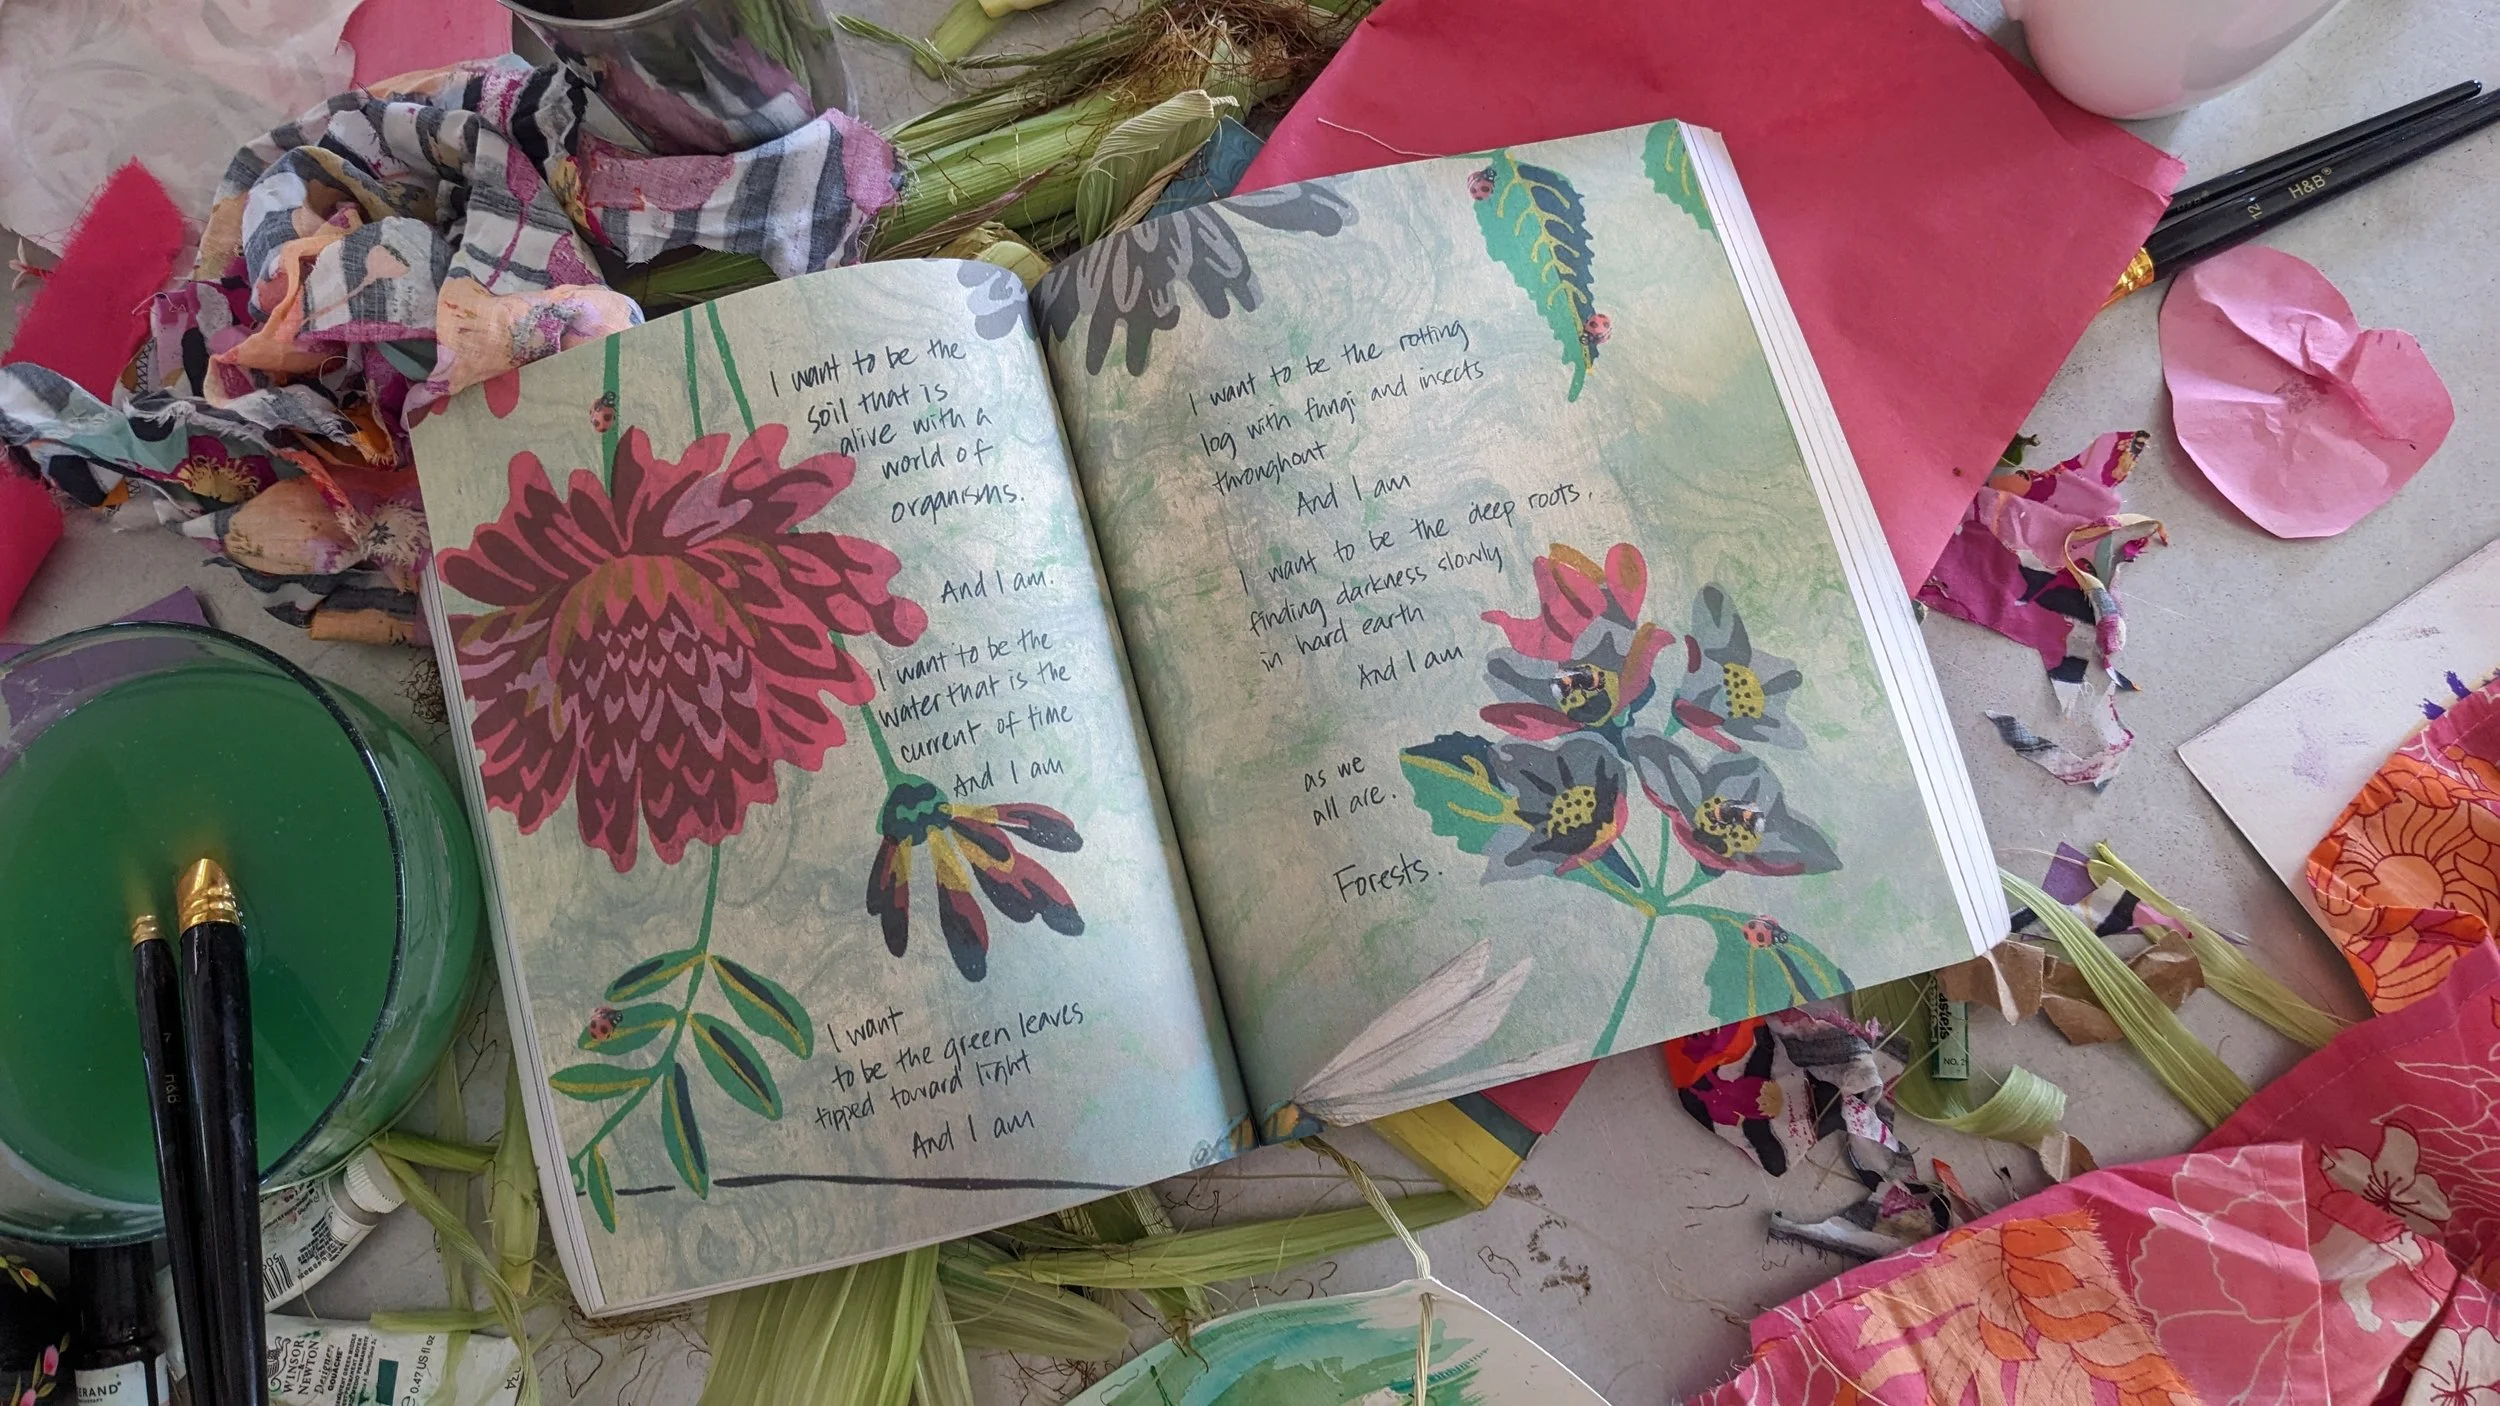 I want to be the
soil that is
alive with a
world of
organisms.
And I am.
I want to be the
water that is the
current of time
And I am
I want
to be the green leaves
tipped toward light
And I am
I want to be the rotting
log with fungi and insects
throughout
And I am
I want to be the deep roots,
finding darkness slowly
in hard earth
And I am
as we
all are.
Forests.
H&B®
12
H&B
7
WINSOR
& NEWTON
Designers
GOUACHE
e 0.47 US fl oz
ERAND
pastels
NO. 2